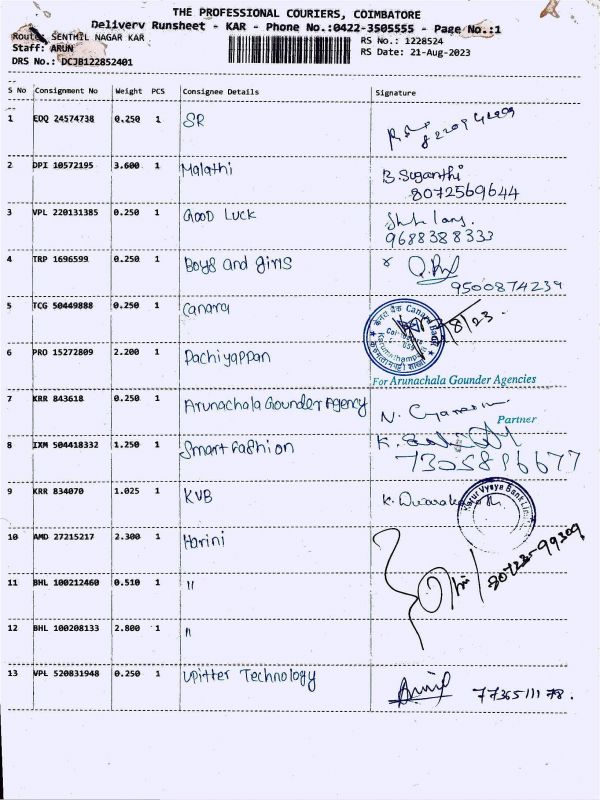 THE PROFESSIONAL COURIERS, COIMBATORE
Delivery Runsheet - KAR - Phone No.:0422-3505555 - Page No.:1
Route: SENTHIL NAGAR KAR
RS No.: 1228524
Staff: ARUN
RS Date: 21-Aug-2023
DRS No.: DCJB122852401
S No Consignment No Weight PCS Consignee Details Signature
1 EDQ 24574738 0.250 1 SR
2 DPI 10572195 3.600 1 Malathi B. Suganthi
8072569644
3 VPL 220131385 0.250 1 GOOD LUCK
9688388333
4 TRP 1696599 0.250 1 Boys and girls
9500874239
5 TCG 50449888 0.250 1 Canara
Canara Bank
6 PRO 15272809 2.200 1 Pachiyappan
For Arunachala Gounder Agencies
7 KRR 843618 0.250 1 Arunachala Gounder Agency N.
Partner
8 IXM 504418332 1.250 1 Smart Fashion K.
7305896677
9 KRR 834070 1.025 1 KVB K.
Karur Vysya Bank
10 AMD 27215217 2.300 1 Harini
80723-99309
11 BHL 100212460 0.510 1 "
12 BHL 100208133 2.800 1 "
13 VPL 520831948 0.250 1 Upitter Technology 7736511178.